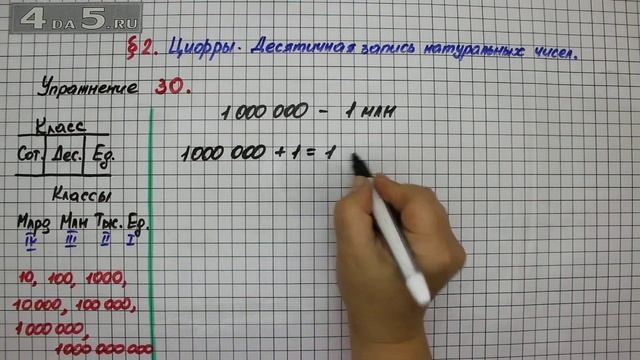 4DA5.RU
§2. Цифры. Десятичная запись натуральных чисел.
Упражнение 30.
1 000 000 – 1 млн
1000 000 + 1 = 1
Класс
Сот. Дес. Ед.
Классы
Млрд Млн Тыс. Ед.
IV III II I
10, 100, 1000,
10 000, 100 000,
1 000 000,
1000 000 000